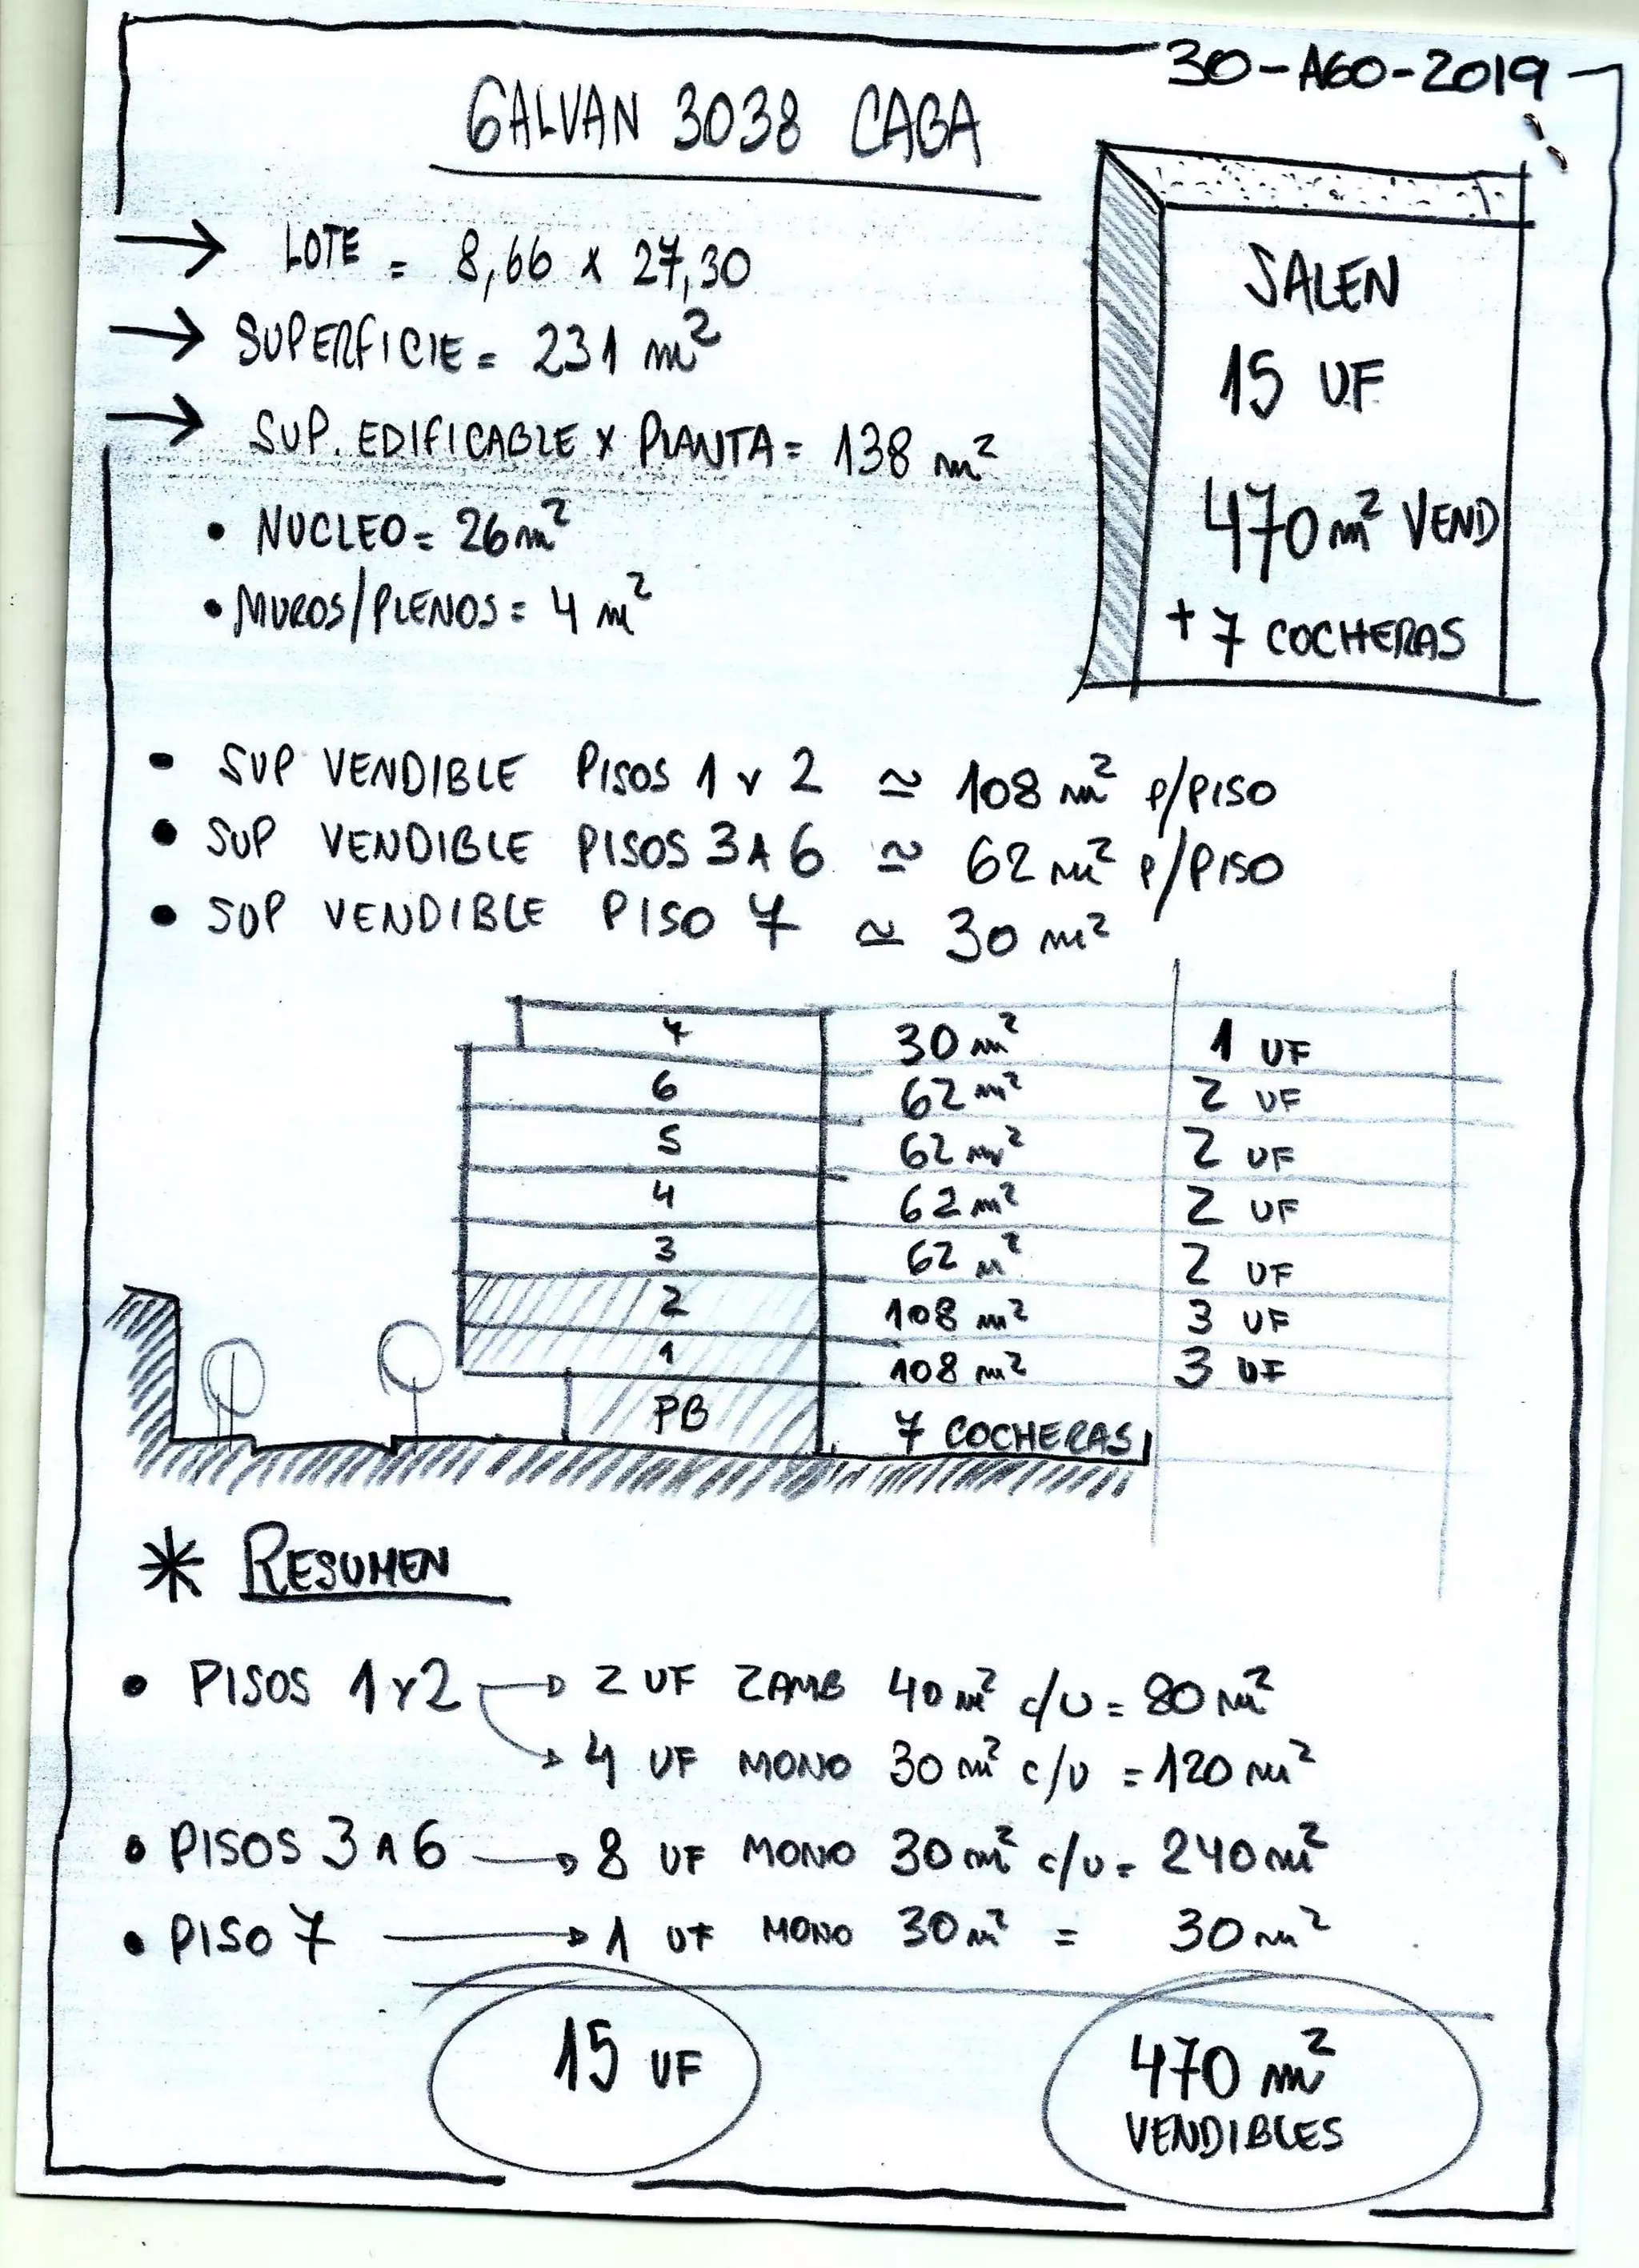 30-AGO-2019
GALVAN 3038 CABA
→ LOTE = 8,66 x 27,30
→ SUPERFICIE = 231 m²
→ SUP. EDIFICABLE x PLANTA = 138 m²
• NUCLEO = 26 m²
• MUROS/PLENOS = 4 m²
SALEN
15 UF
470 m² VEND
+ 7 COCHERAS
• SUP VENDIBLE PISOS 1 Y 2 ≃ 108 m² p/PISO
• SUP VENDIBLE PISOS 3 A 6 ≃ 62 m² p/PISO
• SUP VENDIBLE PISO 7 ≃ 30 m²
7 30 m² 1 UF
6 62 m² 2 UF
5 62 m² 2 UF
4 62 m² 2 UF
3 62 m² 2 UF
2 108 m² 3 UF
1 108 m² 3 UF
PB 7 COCHERAS
* RESUMEN
• PISOS 1 Y 2 → 2 UF 2 AMB 40 m² c/u = 80 m²
→ 4 UF MONO 30 m² c/u = 120 m²
• PISOS 3 A 6 → 8 UF MONO 30 m² c/u = 240 m²
• PISO 7 → 1 UF MONO 30 m² = 30 m²
15 UF
470 m²
VENDIBLES